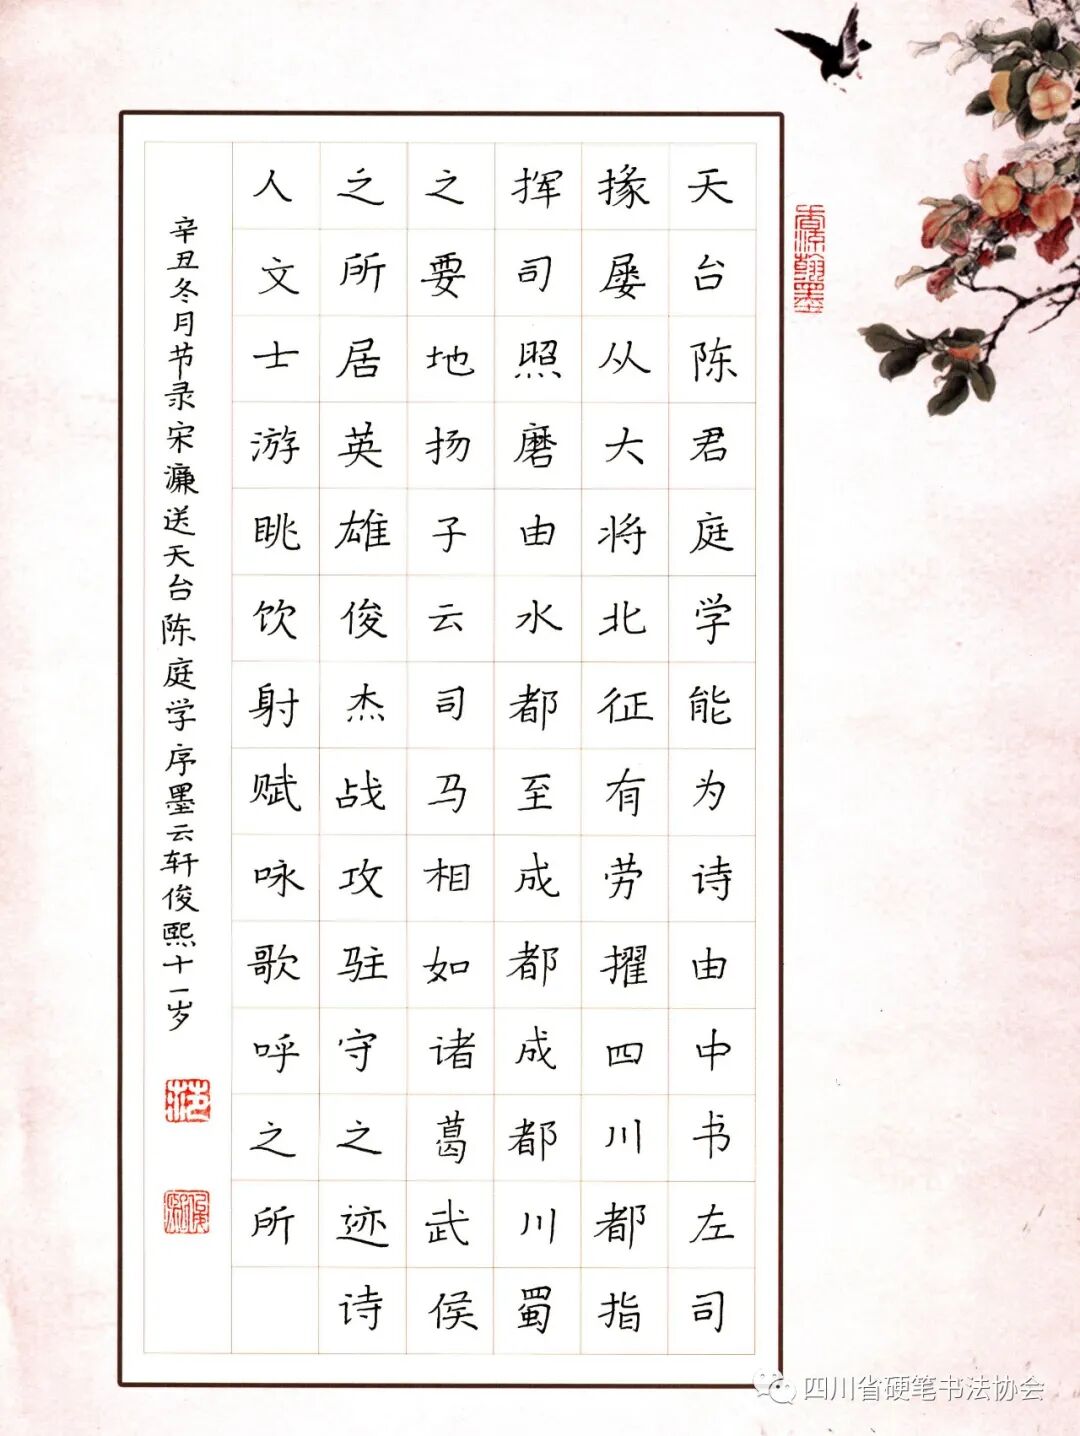 天台陈君庭学能为诗由中书左司
掾屡从大将北征有劳擢四川都指
挥司照磨由水都至成都成都川蜀
之要地扬子云司马相如诸葛武侯
之所居英雄俊杰战攻驻守之迹诗
人文士游眺饮射赋咏歌呼之所
辛丑冬月节录宋濂送天台陈庭学序墨云轩俊熙十一岁
四川省硬笔书法协会